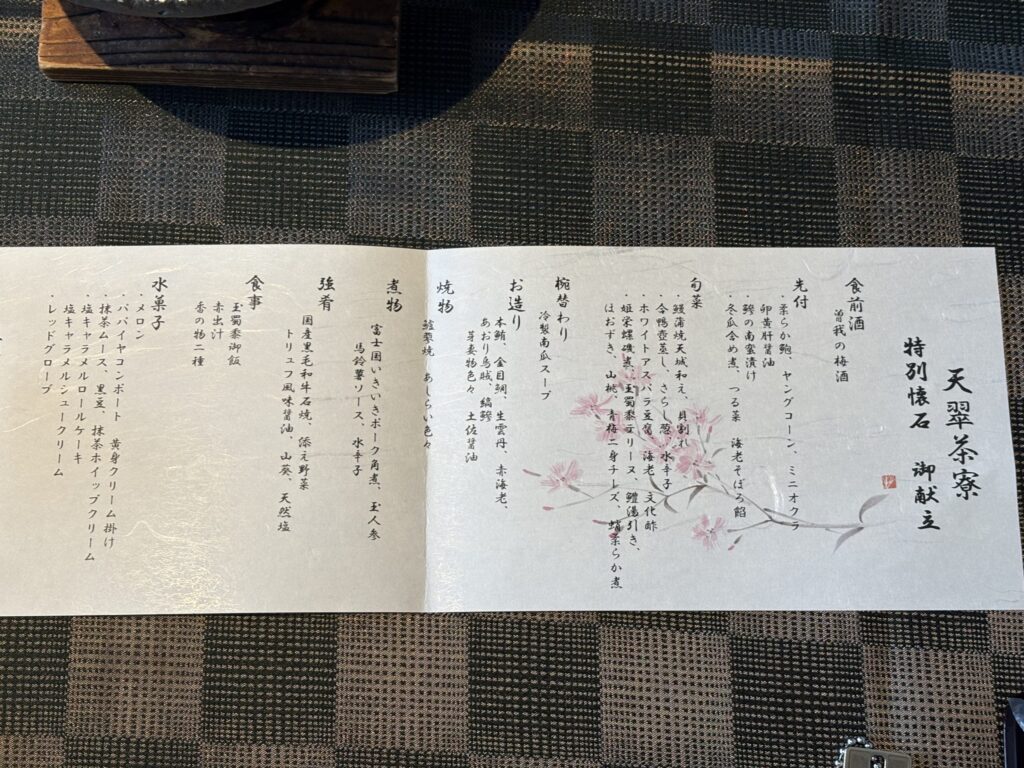 天翠茶寮
特別懐石　御献立
食前酒
曽我の梅酒
先付
・柔らか鮑、ヤングコーン、ミニオクラ
卵黄肝醤油
・鰺の南蛮漬け
・冬瓜含め煮、つる菜　海老そぼろ餡
旬菜
・鰻蒲焼天城和え、貝割れ
・合鴨壺蒸し、さらし葱、水辛子
・ホワイトアスパラ豆腐　海老　文化酢
・姫栄螺磯煮、玉蜀黍テリーヌ、鱧湯引き、
ほおずき、山桃、青梅二身チーズ、蛸柔らか煮
椀替わり
冷製南瓜スープ
お造り
本鮪、金目鯛、生雲丹、赤海老、
あおり烏賊、縞鰺
芽妻物色々　土佐醤油
焼物
鱸梨焼　あしらい色々
煮物
富士国いきいきポーク角煮、玉人参
馬鈴薯ソース、水辛子
強肴
国産黒毛和牛石焼、添え野菜
トリュフ風味醤油、山葵、天然塩
食事
玉蜀黍御飯
赤出汁
香の物二種
水菓子
・メロン
・パパイヤコンポート　黄身クリーム掛け
・抹茶ムース、黒豆、抹茶ホイップクリーム
・塩キャラメルロールケーキ
塩キャラメルシュークリーム
・レッドグローブ